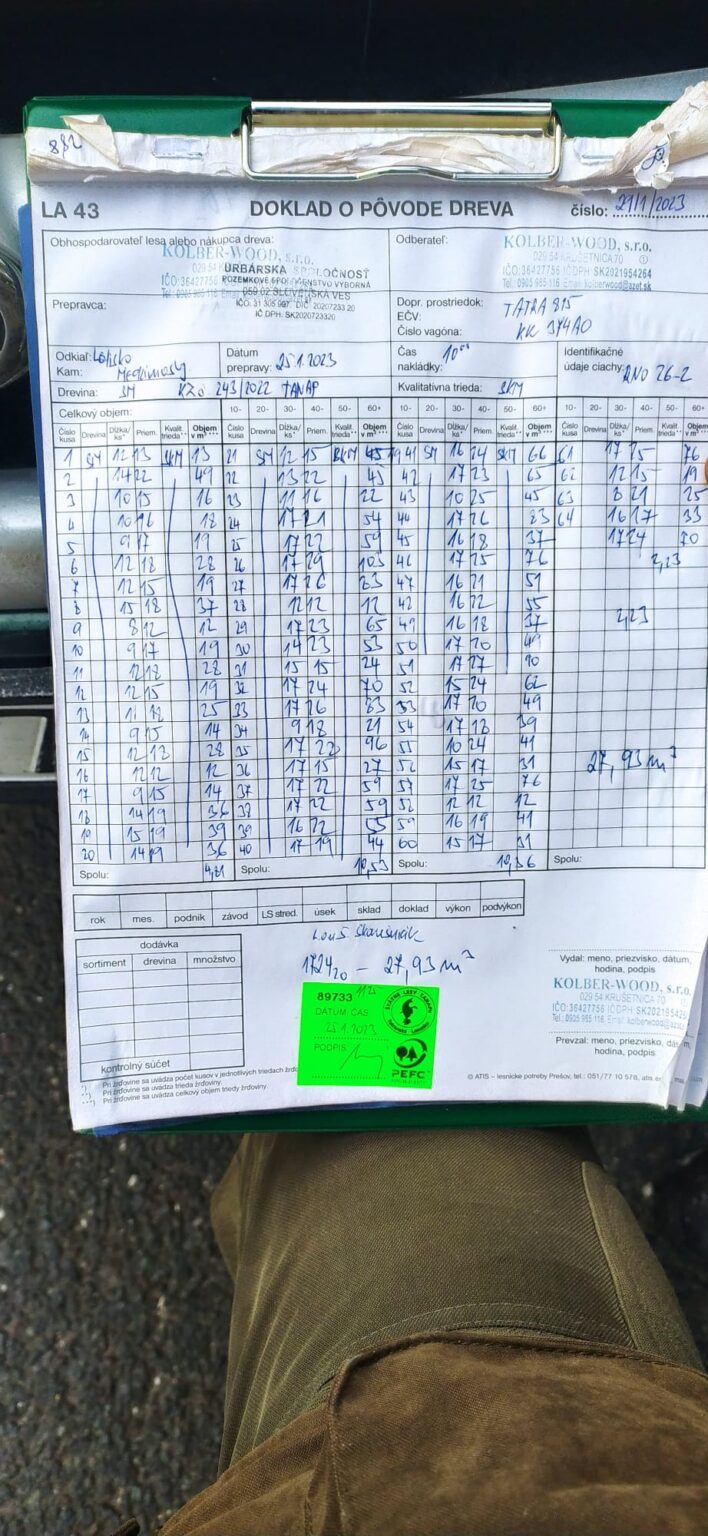 882
LA 43 DOKLAD O PÔVODE DREVA číslo: 21/1/2023
Obhospodarovateľ lesa alebo nákupca dreva:
KOLBER-WOOD, s.r.o.
URBÁRSKA SPOLOČNOSŤ
POZEMKOVÉ SPOLOČENSTVO VÝBORNÁ
059 02 SLOVENSKÁ VES
IČO: 31 305 997, DIČ 20207233 20
IČ DPH: SK2020723320
Odberateľ:
KOLBER-WOOD, s.r.o.
029 54 KRUŠETNICA 70
IČO:36427756 IČ DPH: SK2021954264
Tel.: 0905 985 116 Email: kolberwood@azet.sk
Prepravca:
Dopr. prostriedok: TATRA 815
EČV: KK 374AO
Číslo vagóna:
Odkiaľ:
Kam:
Dátum prepravy: 25.1.2023
Čas nakládky:
Identifikačné údaje ciachy:
Drevina: SM 243/2022 TANAP
Kvalitatívna trieda:
Celkový objem: 10- 20- 30- 40- 50- 60+ 10- 20- 30- 40- 50- 60+ 10- 20- 30- 40- 50- 60+
Číslo kusa Drevina Dĺžka/ks Priem. Kvalit. trieda Objem v m³
1 SM 12 13 13
2 14 22 49
3 10 15 16
4 10 16 18
5 9 17 19
6 12 18 28
7 12 15 19
8 15 18 37
9 8 12 12
10 9 17 19
11 12 18 28
12 12 15 19
14 9 15 14
15 12 18 28
16 12 12 12
17 9 15 14
18 14 19 36
19 15 19 39
20 14 19 36
Spolu: 4,81
21 SM 12 15
22 13 22 45
23 11 16 22
24 17 21 54
25 17 22 59
26 17 29 103
27 17 26 83
28 12 12 12
29 17 23 65
30 14 23 53
31 15 15 24
32 17 24 70
33 17 26 83
34 9 18 21
35 17 96
36 17 15 27
37 17 22 59
38 17 22 59
39 16 22 55
40 17 19 44
Spolu: 10,53
41 SM 16 24 66
42 17 23 65
43 10 25 45
44 17 26 83
45 16 18 37
46 17 25 76
47 16 21 51
48 16 22 55
49 16 18 37
50 17 20 49
51 17 27 90
52 15 24 62
53 17 20 49
54 17 18 39
55 10 24 41
56 15 17 31
57 17 25 76
58 12 12 12
59 16 19 41
60 15 17 31
Spolu: 10,36
61 17 25 76
62 12 15 19
63 8 21 25
64 16 17 33
17 24 70
2,23
2,23
27,93 m³
Spolu:
rok mes. podnik závod LS stred. úsek sklad doklad výkon podvýkon
dodávka
sortiment drevina množstvo
kontrolný súčet
27,93 m³
89733
DÁTUM, ČAS
25.1.2023
PODPIS
PEFC
Vydal: meno, priezvisko, dátum,
hodina, podpis
KOLBER-WOOD, s.r.o.
029 54 KRUŠETNICA 70
Prevzal: meno, priezvisko,
hodina, podpis
Pri žrďovine sa uvádza počet kusov v jednotlivých triedach
Pri žrďovine sa uvádza trieda žrďoviny.
Pri žrďovine sa uvádza celkový objem triedy žrďoviny.
© ATIS – lesnícke potreby Prešov, tel.: 051/77 10 578,